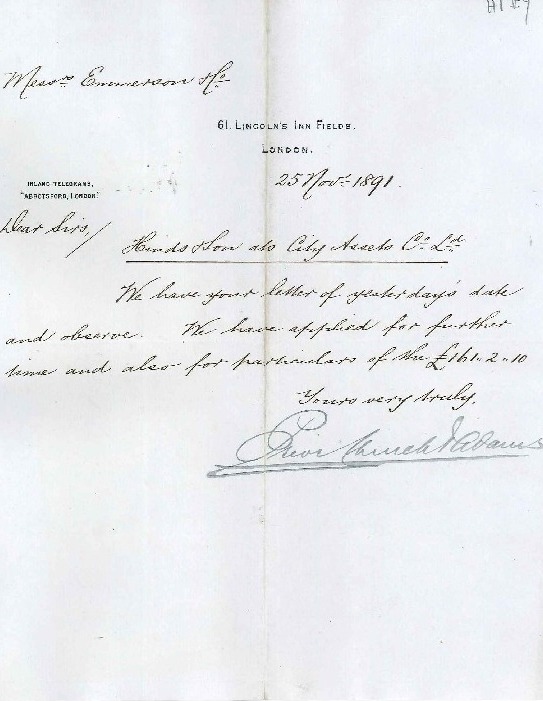 Messrs Emmerson & Co
61, LINCOLN'S INN FIELDS.
LONDON.
25 Novr 1891.
INLAND TELEGRAMS,
"ABBOTSFORD, LONDON."
Dear Sirs,
Hinds & Son ats City Assets Co Ld
We have your letter of yesterday's date
and observe. We have applied for further
time and also for particulars of the £161..2..10
Yours very truly,
Prior Church & Adams